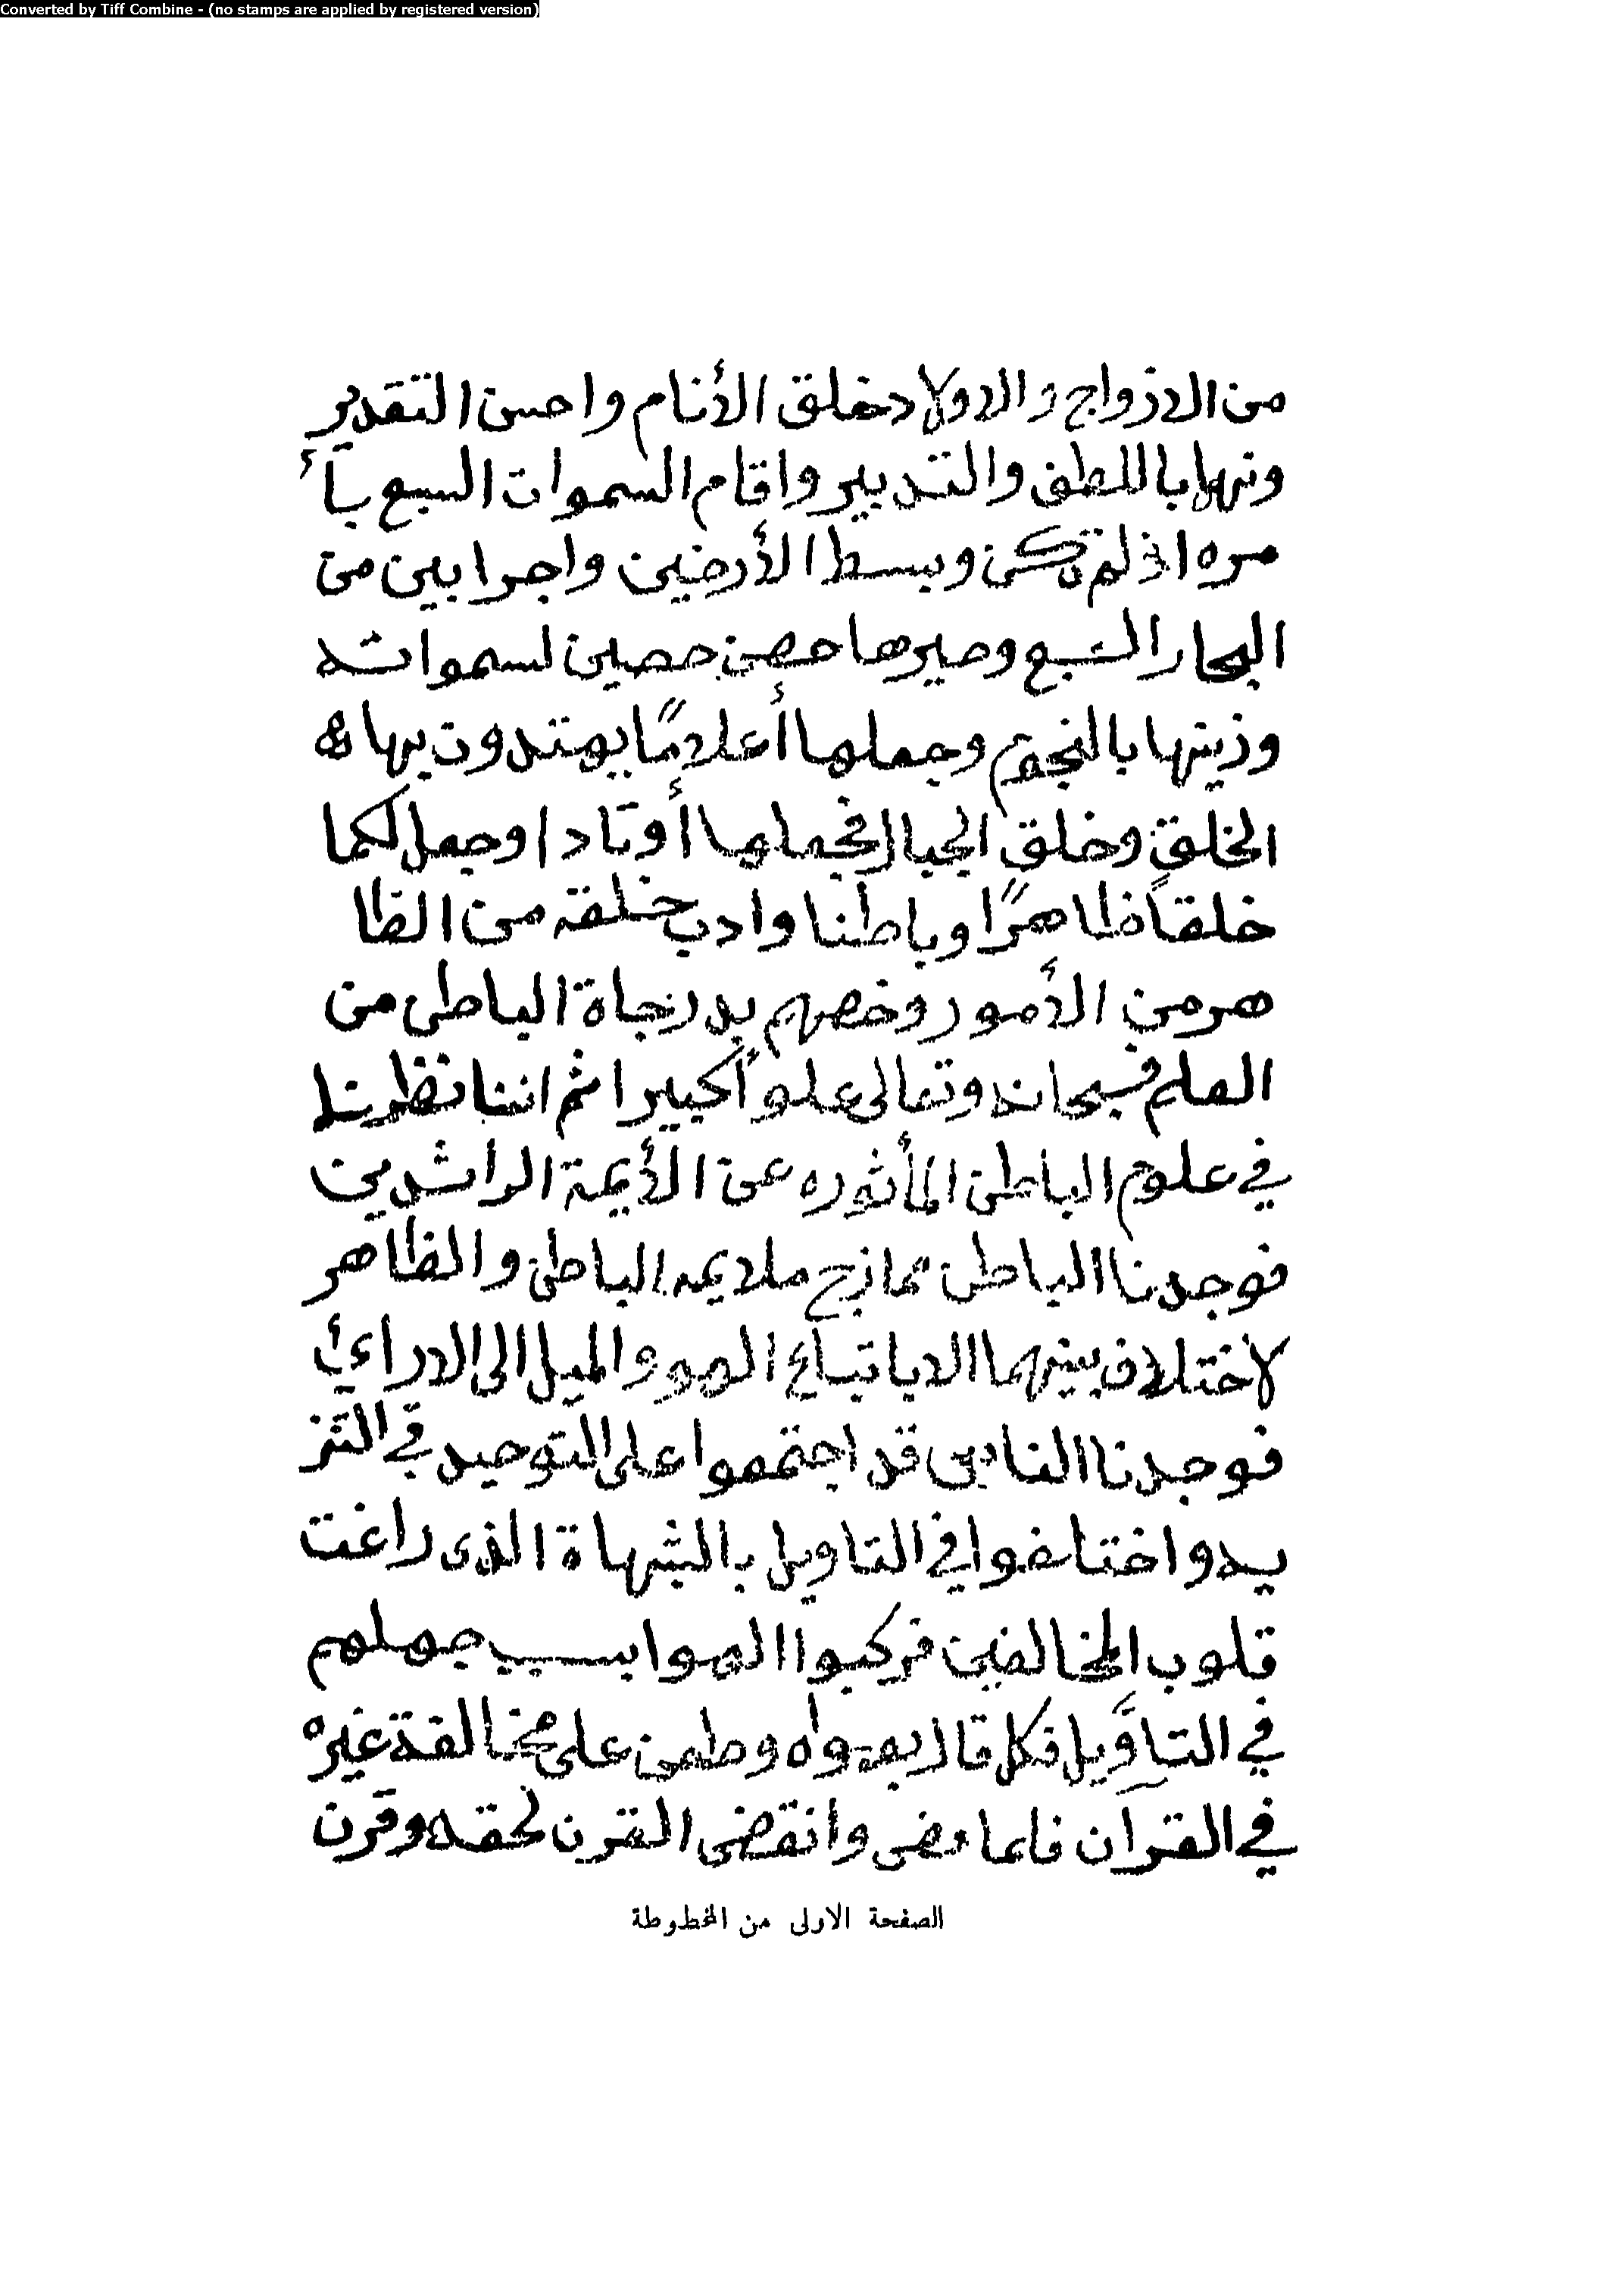 Converted by Tiff Combine - (no stamps are applied by registered version)
من الازواج والاولاد خلق الأنام واحسن التقدير
ونهلها باللطف والتدبير واقام السموات السبع بأ
مره اذ لم تكن وبسط الأرضين واجرا بين من
البحار السبع وصيرها حصن حصين لسمواته
وزينها بالنجوم وجعلها أعلامًا يهتدون بها
الخلق وخلق الجبال فجعلها أوتادا وجعل لكما
خلقاً ظاهرًا وباطنا وادب خلقه من الظا
هر من الأمور وخصهم بدرجاة الباطن من
العلم فسبحانه وتعالى علواً كبيرا ثم اننا نظرنا
في علوم الباطن المأثوره عن الأيمة الراشدين
فوجدنا الباطن ممازج ملايمه الباطن والظاهر
لاختلاف بينهما الا باتباع الهوو الميل الى الاراءئ
فوجدنا الناس قد اجتمعوا على التوحيد في التنز
يد واختلفوا في التاويل بالشبهاة الذى راغت
قلوب المخالفين فركبوا الهوا بسبب جهلهم
في التأويل فكل قال بهواه وطعن على مخالفة غيره
في القران فلما مضى وانقضى القرن لحقه وقرن
الصفحة الاولى من المخطوطة